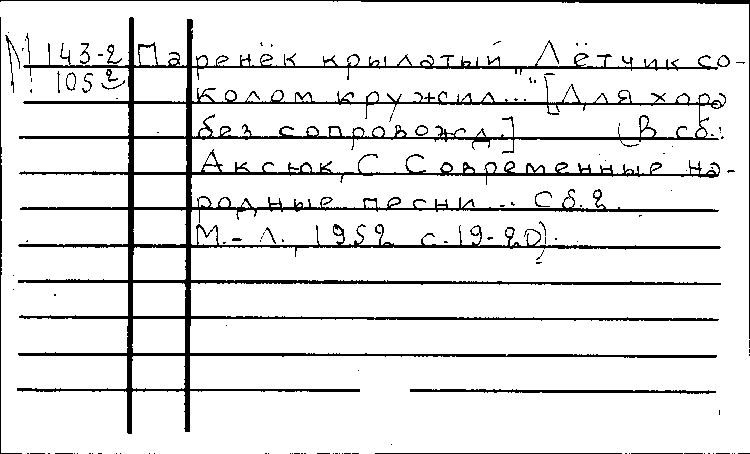 М 143-2 Паренёк крылатый „Лётчик со-
1052 колом кружил..." [Для хора
без сопровожд.] (В сб.:
Аксюк, С Современные на-
родные песни .. Сб. 2.
М.-Л., 1952 с. 19-20).